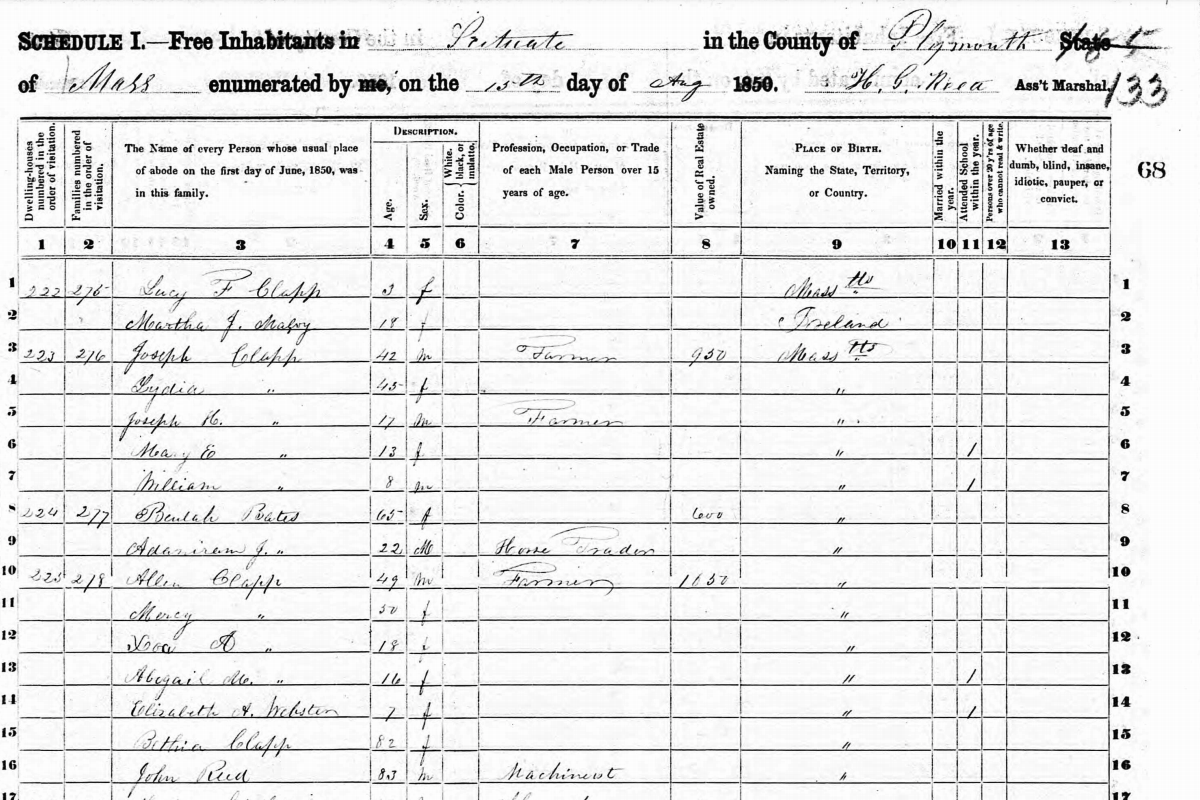 SCHEDULE I.—Free Inhabitants in Scituate in the County of Plymouth State
of Mass enumerated by me, on the 15th day of Aug 1850. Ass't Marshal,
133
68
Dwelling-houses numbered in the order of visitation.
Families numbered in the order of visitation.
The Name of every Person whose usual place of abode on the first day of June, 1850, was in this family.
DESCRIPTION.
Age.
Sex.
Color. White, black, or mulatto.
Profession, Occupation, or Trade of each Male Person over 15 years of age.
Value of Real Estate owned.
PLACE OF BIRTH. Naming the State, Territory, or Country.
Married within the year.
Attended School within the year.
Persons over 20 y'rs of age who cannot read & write.
Whether deaf and dumb, blind, insane, idiotic, pauper, or convict.
1 2 3 4 5 6 7 8 9 10 11 12 13
1 222 275 Lucy F Clapp 3 f Mass tts 1
2 Martha J. 18 f Ireland 2
3 223 276 Joseph Clapp 42 m Farmer 950 Mass tts 3
4 Lydia " 45 f " 4
5 Joseph H. " 17 m Farmer " 5
6 Mary E " 13 f " 1 6
7 William " 8 m " 1 7
8 224 277 Beulah Bates 65 f 600 " 8
9 Adoniram J. " 22 M Horse Trader " 9
10 225 278 Allen Clapp 49 m Farmer 1050 " 10
11 Mercy " 50 f " 11
12 A " 18 f " 12
13 Abigail M. " 16 f " 1 13
14 Elizabeth A. Webster 7 f " 1 14
15 Bethia Clapp 82 f " 15
16 John Reed 83 m Machinest " 16
17 17